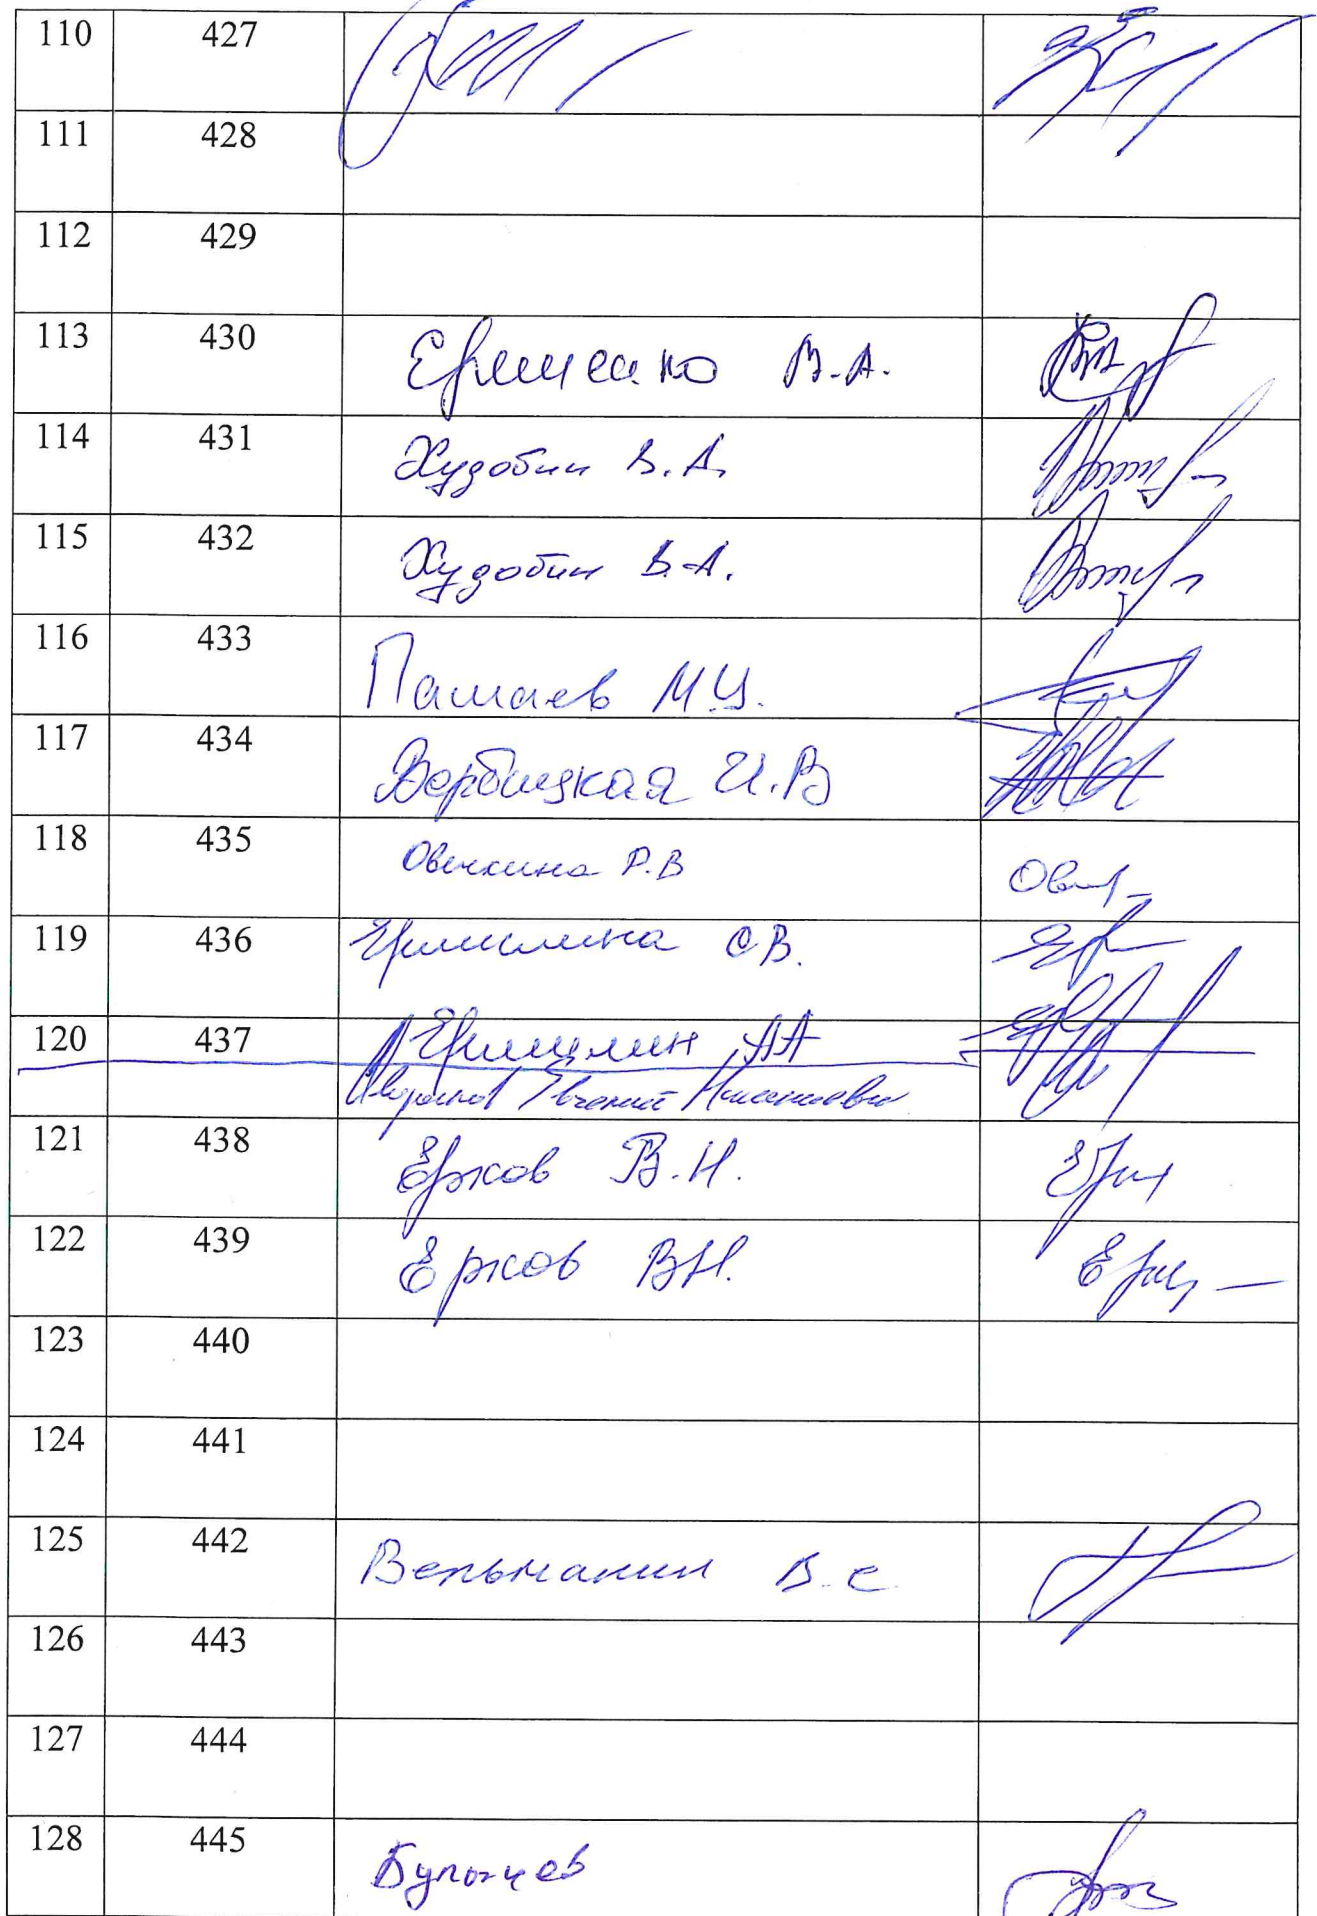 110 427
111 428
112 429
113 430 В.А.
114 431 Худобин В.А.
115 432 Худобин В.А.
116 433 Пашаев М.И.
117 434 Вербицкая И.В
118 435 Овечкина Р.В
119 436 С.В.
120 437 АА
Евгений
121 438 Ержов В.Н.
122 439 Ержов В.Н.
123 440
124 441
125 442 Вельманин В.С
126 443
127 444
128 445 Булычев